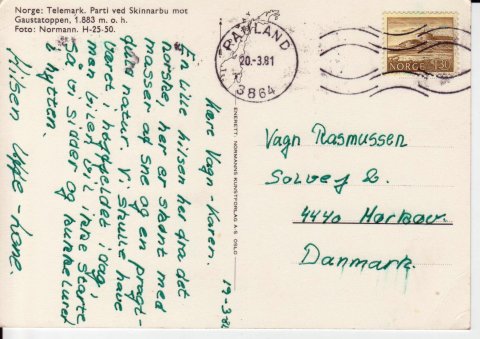 Norge: Telemark. Parti ved Skinnarbu mot
Gaustatoppen, 1.883 m. o. h.
Foto: Normann. H-25-50.
RAULAND
20.-3.81
3864
NORGE 1,30
ENERETT: NORMANNS KUNSTFORLAG A.S. OSLO
19-3-81
Kære Vagn-Karen.
En lille hilsen her fra det
norske, her er skønt med
masser af sne og en pragt-
fuld natur. Vi skulle have
været i højfjeldet i dag,
men bilen vil ikke starte
så vi sidder og hunkelurer
i hytten.
Hilsen Uffe-Lene.
Vagn Rasmussen
Solvej
4440 Mørkøv.
Danmark.